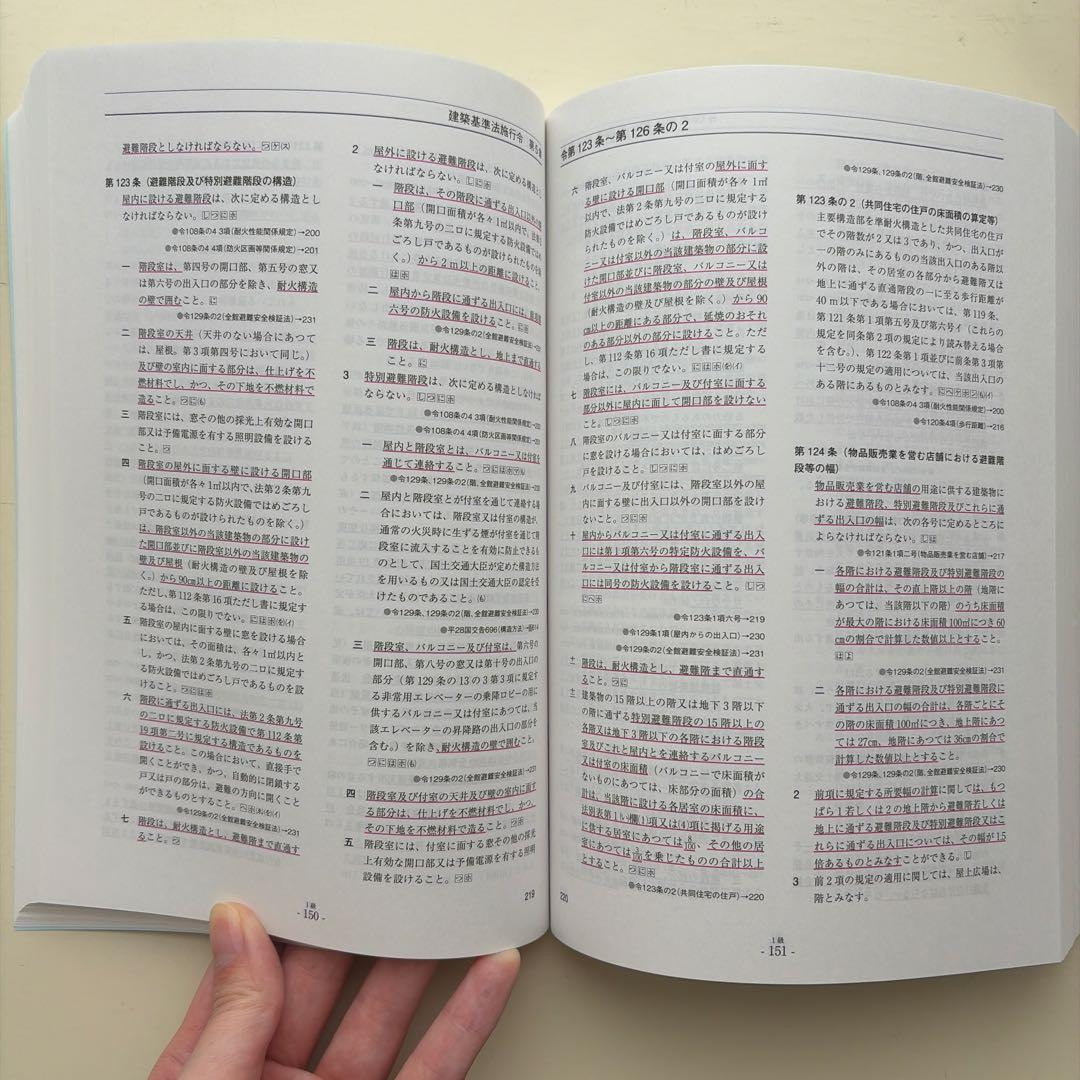 建築基準法施行令 第5章
避難階段としなければならない。
第123条（避難階段及び特別避難階段の構造）
屋内に設ける避難階段は、次に定める構造とし
なければならない。
●令108条の4 3項(耐火性能関係規定)→200
●令108条の4 4項(防火区画等関係規定)→201
一 階段室は、第四号の開口部、第五号の窓又
は第六号の出入口の部分を除き、耐火構造
の壁で囲むこと。
●令129条の2(全館避難安全検証法)→231
二 階段室の天井（天井のない場合にあつて
は、屋根。第3項第四号において同じ。）
及び壁の室内に面する部分は、仕上げを不
燃材料でし、かつ、その下地を不燃材料で
造ること。
三 階段室には、窓その他の採光上有効な開口
部又は予備電源を有する照明設備を設ける
こと。
四 階段室の屋外に面する壁に設ける開口部
（開口面積が各々1㎡以内で、法第2条第九
号の二ロに規定する防火設備ではめごろし
戸であるものが設けられたものを除く。）
は、階段室以外の当該建築物の部分に設け
た開口部並びに階段室以外の当該建築物の
壁及び屋根（耐火構造の壁及び屋根を除
く。）から90cm以上の距離に設けること。た
だし、第112条第16項ただし書に規定す
る場合は、この限りでない。
五 階段室の屋内に面する壁に窓を設ける場合
においては、その面積は、各々1㎡以内と
し、かつ、法第2条第九号の二ロに規定す
る防火設備ではめごろし戸であるものを設
けること。
六 階段に通ずる出入口には、法第2条第九号
の二ロに規定する防火設備で第112条第
19項第二号に規定する構造であるものを
設けること。この場合において、直接手で
開くことができ、かつ、自動的に閉鎖する
戸又は戸の部分は、避難の方向に開くこと
ができるものとすること。
●令129条の2(全館避難安全検証法)→231
七 階段は、耐火構造とし、避難階まで直通す
ること。
2 屋外に設ける避難階段は、次に定める構造とし
なければならない。
一 階段は、その階段に通ずる出入口以外の開
口部（開口面積が各々1㎡以内で、法第2
条第九号の二ロに規定する防火設備ではめ
ごろし戸であるものが設けられたものを除
く。）から2m以上の距離に設けること。
二 屋内から階段に通ずる出入口には、前項第
六号の防火設備を設けること。
●令129条の2(全館避難安全検証法)→231
三 階段は、耐火構造とし、地上まで直通する
こと。
3 特別避難階段は、次に定める構造としなければ
ならない。
●令108条の4 3項(耐火性能関係規定)→200
●令108条の4 4項(防火区画等関係規定)→201
一 屋内と階段室とは、バルコニー又は付室を
通じて連絡すること。
●令129条、129条の2(階、全館避難安全検証法)→230
二 屋内と階段室とが付室を通じて連絡する場
合においては、階段室又は付室の構造が、
通常の火災時に生ずる煙が付室を通じて階
段室に流入することを有効に防止できるも
のとして、国土交通大臣が定めた構造方法
を用いるもの又は国土交通大臣の認定を受
けたものであること。
●令129条、129条の2(階、全館避難安全検証法)→230
●平28国交告696(構造方法)→
三 階段室、バルコニー及び付室は、第六号の
開口部、第八号の窓又は第十号の出入口の
部分（第129条の13の3第3項に規定す
る非常用エレベーターの乗降ロビーの用に
供するバルコニー又は付室にあつては、当
該エレベーターの昇降路の出入口の部分を
含む。）を除き、耐火構造の壁で囲むこと。
●令129条の2(全館避難安全検証法)→231
四 階段室及び付室の天井及び壁の室内に面す
る部分は、仕上げを不燃材料でし、かつ、
その下地を不燃材料で造ること。
五 階段室には、付室に面する窓その他の採光
上有効な開口部又は予備電源を有する照明
設備を設けること。
219
1級
- 150 -
令第123条～第126条の2
六 階段室、バルコニー又は付室の屋外に面す
る壁に設ける開口部（開口面積が各々1㎡
以内で、法第2条第九号の二ロに規定する
防火設備ではめごろし戸であるものが設け
られたものを除く。）は、階段室、バルコ
ニー又は付室以外の当該建築物の部分に設
けた開口部並びに階段室、バルコニー又は
付室以外の当該建築物の部分の壁及び屋根
（耐火構造の壁及び屋根を除く。）から90
cm以上の距離にある部分で、延焼のおそれ
のある部分以外の部分に設けること。ただ
し、第112条第16項ただし書に規定する
場合は、この限りでない。
七 階段室には、バルコニー及び付室に面する
部分以外に屋内に面して開口部を設けない
こと。
八 階段室のバルコニー又は付室に面する部分
に窓を設ける場合においては、はめごろし
戸を設けること。
九 バルコニー及び付室には、階段室以外の屋
内に面する壁に出入口以外の開口部を設け
ないこと。
十 屋内からバルコニー又は付室に通ずる出入
口には第1項第六号の特定防火設備を、バ
ルコニー又は付室から階段室に通ずる出入
口には同号の防火設備を設けること。
●令123条1項六号→219
●令129条1項(屋内からの出入口)→230
●令129条の2(全館避難安全検証法)→231
十一 階段は、耐火構造とし、避難階まで直通す
ること。
十二 建築物の15階以上の階又は地下3階以下
の階に通ずる特別避難階段の15階以上の
各階又は地下3階以下の各階における階段
室及びこれと屋内とを連絡するバルコニー
又は付室の床面積（バルコニーで床面積が
ないものにあつては、床部分の面積）の合
計は、当該階に設ける各居室の床面積に、
法別表第1(い)欄(1)項又は(4)項に掲げる用途
に供する居室にあつては8/100、その他の居
室にあつては3/100を乗じたものの合計以上
とすること。
●令123条の2(共同住宅の住戸)→220
●令129条、129条の2(階、全館避難安全検証法)→230
第123条の2（共同住宅の住戸の床面積の算定等）
主要構造部を準耐火構造とした共同住宅の住戸
でその階数が2又は3であり、かつ、出入口が
一の階のみにあるものの当該出入口のある階以
外の階は、その居室の各部分から避難階又は
地上に通ずる直通階段の一に至る歩行距離が
40m以下である場合においては、第119条、
第121条第1項第五号及び第六号イ（これらの
規定を同条第2項の規定により読み替える場合
を含む。）、第122条第1項並びに前条第3項第
十二号の規定の適用については、当該出入口の
ある階にあるものとみなす。
●令108条の4 3項(耐火性能関係規定)→200
●令120条4項(歩行距離)→216
第124条（物品販売業を営む店舗における避難階
段等の幅）
物品販売業を営む店舗の用途に供する建築物に
おける避難階段、特別避難階段及びこれらに通
ずる出入口の幅は、次の各号に定めるところに
よらなければならない。
●令121条1項二号(物品販売業を営む店舗)→217
一 各階における避難階段及び特別避難階段の
幅の合計は、その直上階以上の階（地階に
あつては、当該階以下の階）のうち床面積
が最大の階における床面積100㎡につき60
cmの割合で計算した数値以上とすること。
●令129条の2(全館避難安全検証法)→231
二 各階における避難階段及び特別避難階段に
通ずる出入口の幅の合計は、各階ごとにそ
の階の床面積100㎡につき、地上階にあつ
ては27cm、地階にあつては36cmの割合で
計算した数値以上とすること。
●令129条、129条の2(階、全館避難安全検証法)→230
2 前項に規定する所要幅の計算に関しては、もつ
ぱら1若しくは2の地上階から避難階若しくは
地上に通ずる避難階段及び特別避難階段又はこ
れらに通ずる出入口については、その幅が1.5
倍あるものとみなすことができる。
3 前2項の規定の適用に関しては、屋上広場は、
階とみなす。
220
1級
- 151 -